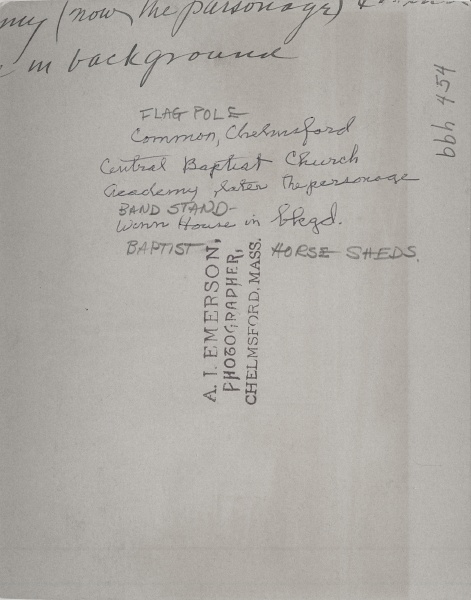 my (now the parsonage)
in background
FLAG POLE
Common, Chelmsford
Central Baptist Church
Academy, later the personage
BAND STAND-
Winn House in bkgd.
BAPTIST HORSE SHEDS.
A. I. EMERSON,
PHOTOGRAPHER,
CHELMSFORD, MASS.
bbh 454